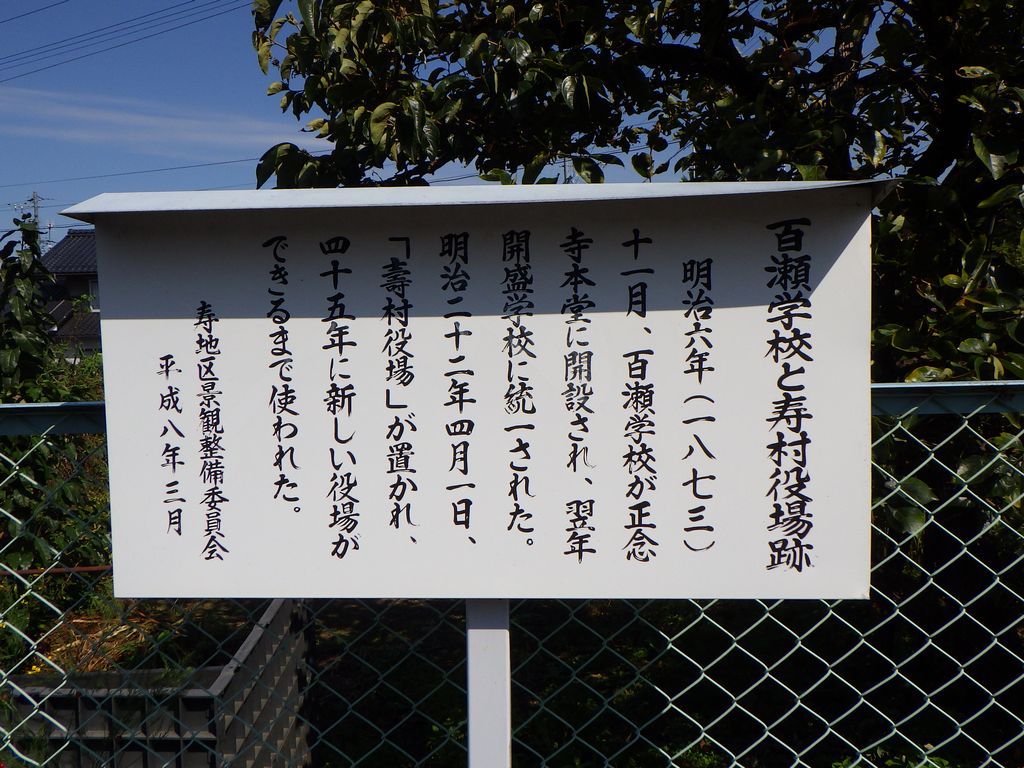 百瀬学校と寿村役場跡
明治六年(一八七三)
十一月、百瀬学校が正念
寺本堂に開設され、翌年
開盛学校に統一された。
明治二十二年四月一日、
「壽村役場」が置かれ、
四十五年に新しい役場が
できるまで使われた。
寿地区景観整備委員会
平成八年三月